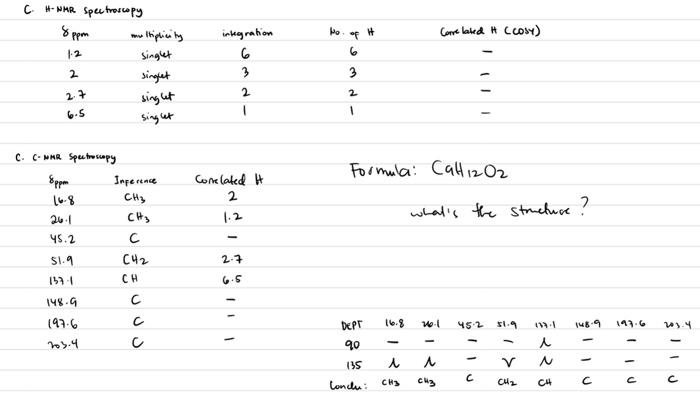 C. H-NMR Spectroscopy
δ ppm multiplicity integration No. of H Correlated H (COSY)
1.2 singlet 6 6 —
2 singlet 3 3 —
2.7 singlet 2 2 —
6.5 singlet 1 1 —
C. C-NMR Spectroscopy
δppm Inference Correlated H
16.8 CH3 2
26.1 CH3 1.2
45.2 C —
51.9 CH2 2.7
137.1 CH 6.5
148.9 C —
197.6 C —
203.4 C —
Formula: C9H12O2
what's the structure?
DEPT 16.8 26.1 45.2 51.9 137.1 148.9 197.6 203.4
90 — — — — — — —
135 — — — —
Conclu: CH3 CH3 C CH2 CH C C C